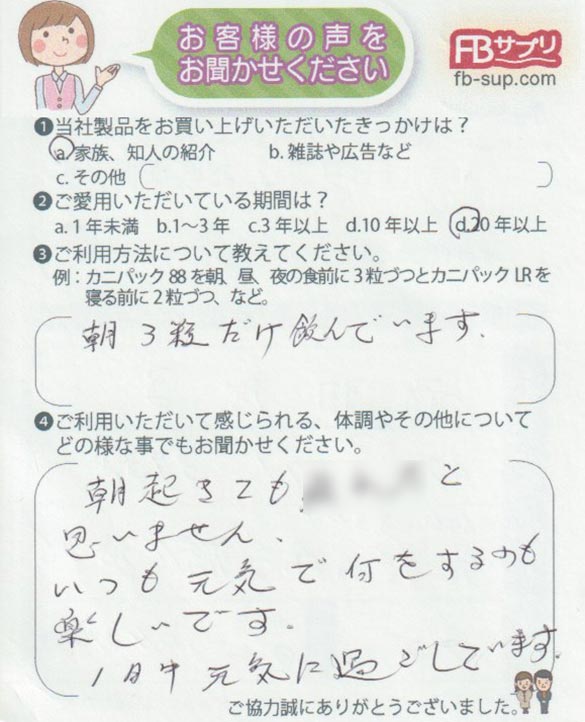 お客様の声を
お聞かせください
FBサプリ
fb-sup.com
❶当社製品をお買い上げいただいたきっかけは？
a.家族、知人の紹介　b.雑誌や広告など
c.その他
❷ご愛用いただいている期間は？
a.1年未満　b.1～3年　c.3年以上　d.10年以上　d.20年以上
❸ご利用方法について教えてください。
例：カニパック88を朝、昼、夜の食前に3粒づつとカニパックLRを
寝る前に2粒づつ、など。
朝3粒だけ飲んでいます.
❹ご利用いただいて感じられる、体調やその他について
どの様な事でもお聞かせください。
朝起きても、と
思いません、
いつも元気で何をするのも
楽しいです。
1日中元気に過ごしています.
ご協力誠にありがとうございました。